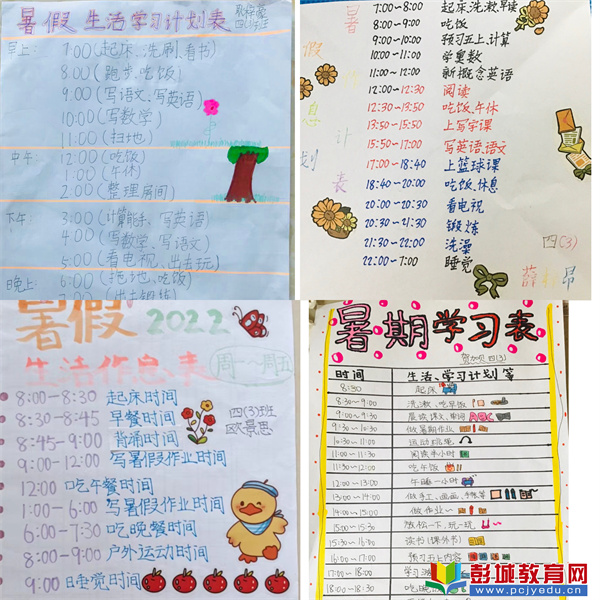 暑假生活学习计划表
早上:
7:00(起床、洗刷、看书)
8:00(跑步、吃饭)
9:00(写语文、写英语)
10:00(写数学)
11:00(扫地)
中午:
12:00(吃饭)
1:00(午休)
2:00(整理房间)
下午:
3:00(计算能手、写英语)
4:00(写数学、写语文)
5:00(看电视、出去玩)
晚上:
6:00(拖地、吃饭)
暑假
息计划表
7:00~8:00 起床、洗漱、早读
8:00~9:00 吃饭
9:00~10:00 预习五上、计算
10:00~11:00 学奥数
11:00~12:00 新概念英语
12:00~12:30 阅读
12:30~13:50 吃饭、午休
13:50~15:50 上写字课
15:50~17:00 写英语、语文
17:00~18:40 上篮球课
18:40~20:00 吃饭、休息
20:00~20:30 看电视
20:30~21:30 锻炼
21:30~22:00 洗澡
22:00~7:00 睡觉
四(3)
暑假 2022
生活作息表
周一~周五
四(3)班
欧景思
8:00-8:30 起床时间
8:30-8:45 早餐时间
8:45-9:00 背诵时间
9:00-12:00 写暑假作业时间
12:00 吃午餐时间
1:00-6:00 写暑假作业时间
6:00-7:30 吃晚餐时间
8:00-9:00 户外运动时间
9:00 睡觉时间
暑期学习表
贺加贝 四(3)
时间 生活、学习计划等
8:30 起床
8:30~9:00 洗漱、吃早饭
9:00~9:30 晨读课文、单词
9:30~10:30 做暑期作业
10:30~11:00 运动、跳绳
11:00~11:30 阅读半小时
11:30~12:00 吃午饭
12:00~13:00 午睡一小时
13:00~14:00 做手工、画画、手账等
14:00~15:00 做作业~
15:00~15:30 放松一下,玩一玩
15:30~16:00 读书(课外书)
16:00~17:00 预习五上内容
17:00~18:00
18:00~18:30
彭城教育网
www.pcjyedu.cn